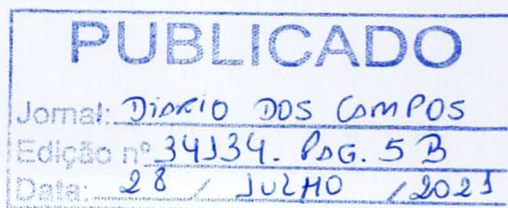 PUBLICADO
Jornal: DiáRIO DOS CAMPOS
Edição nº 34134. PÁG. 5 B
Data: 28 / JULHO / 2021